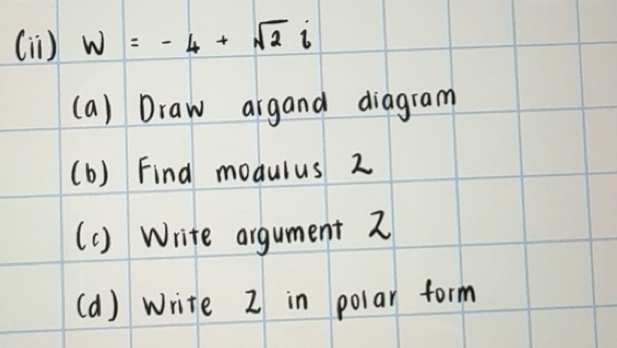 (ii) W = - 4 + √2 i
(a) Draw argand diagram
(b) Find modulus z
(c) Write argument z
(d) Write z in polar form